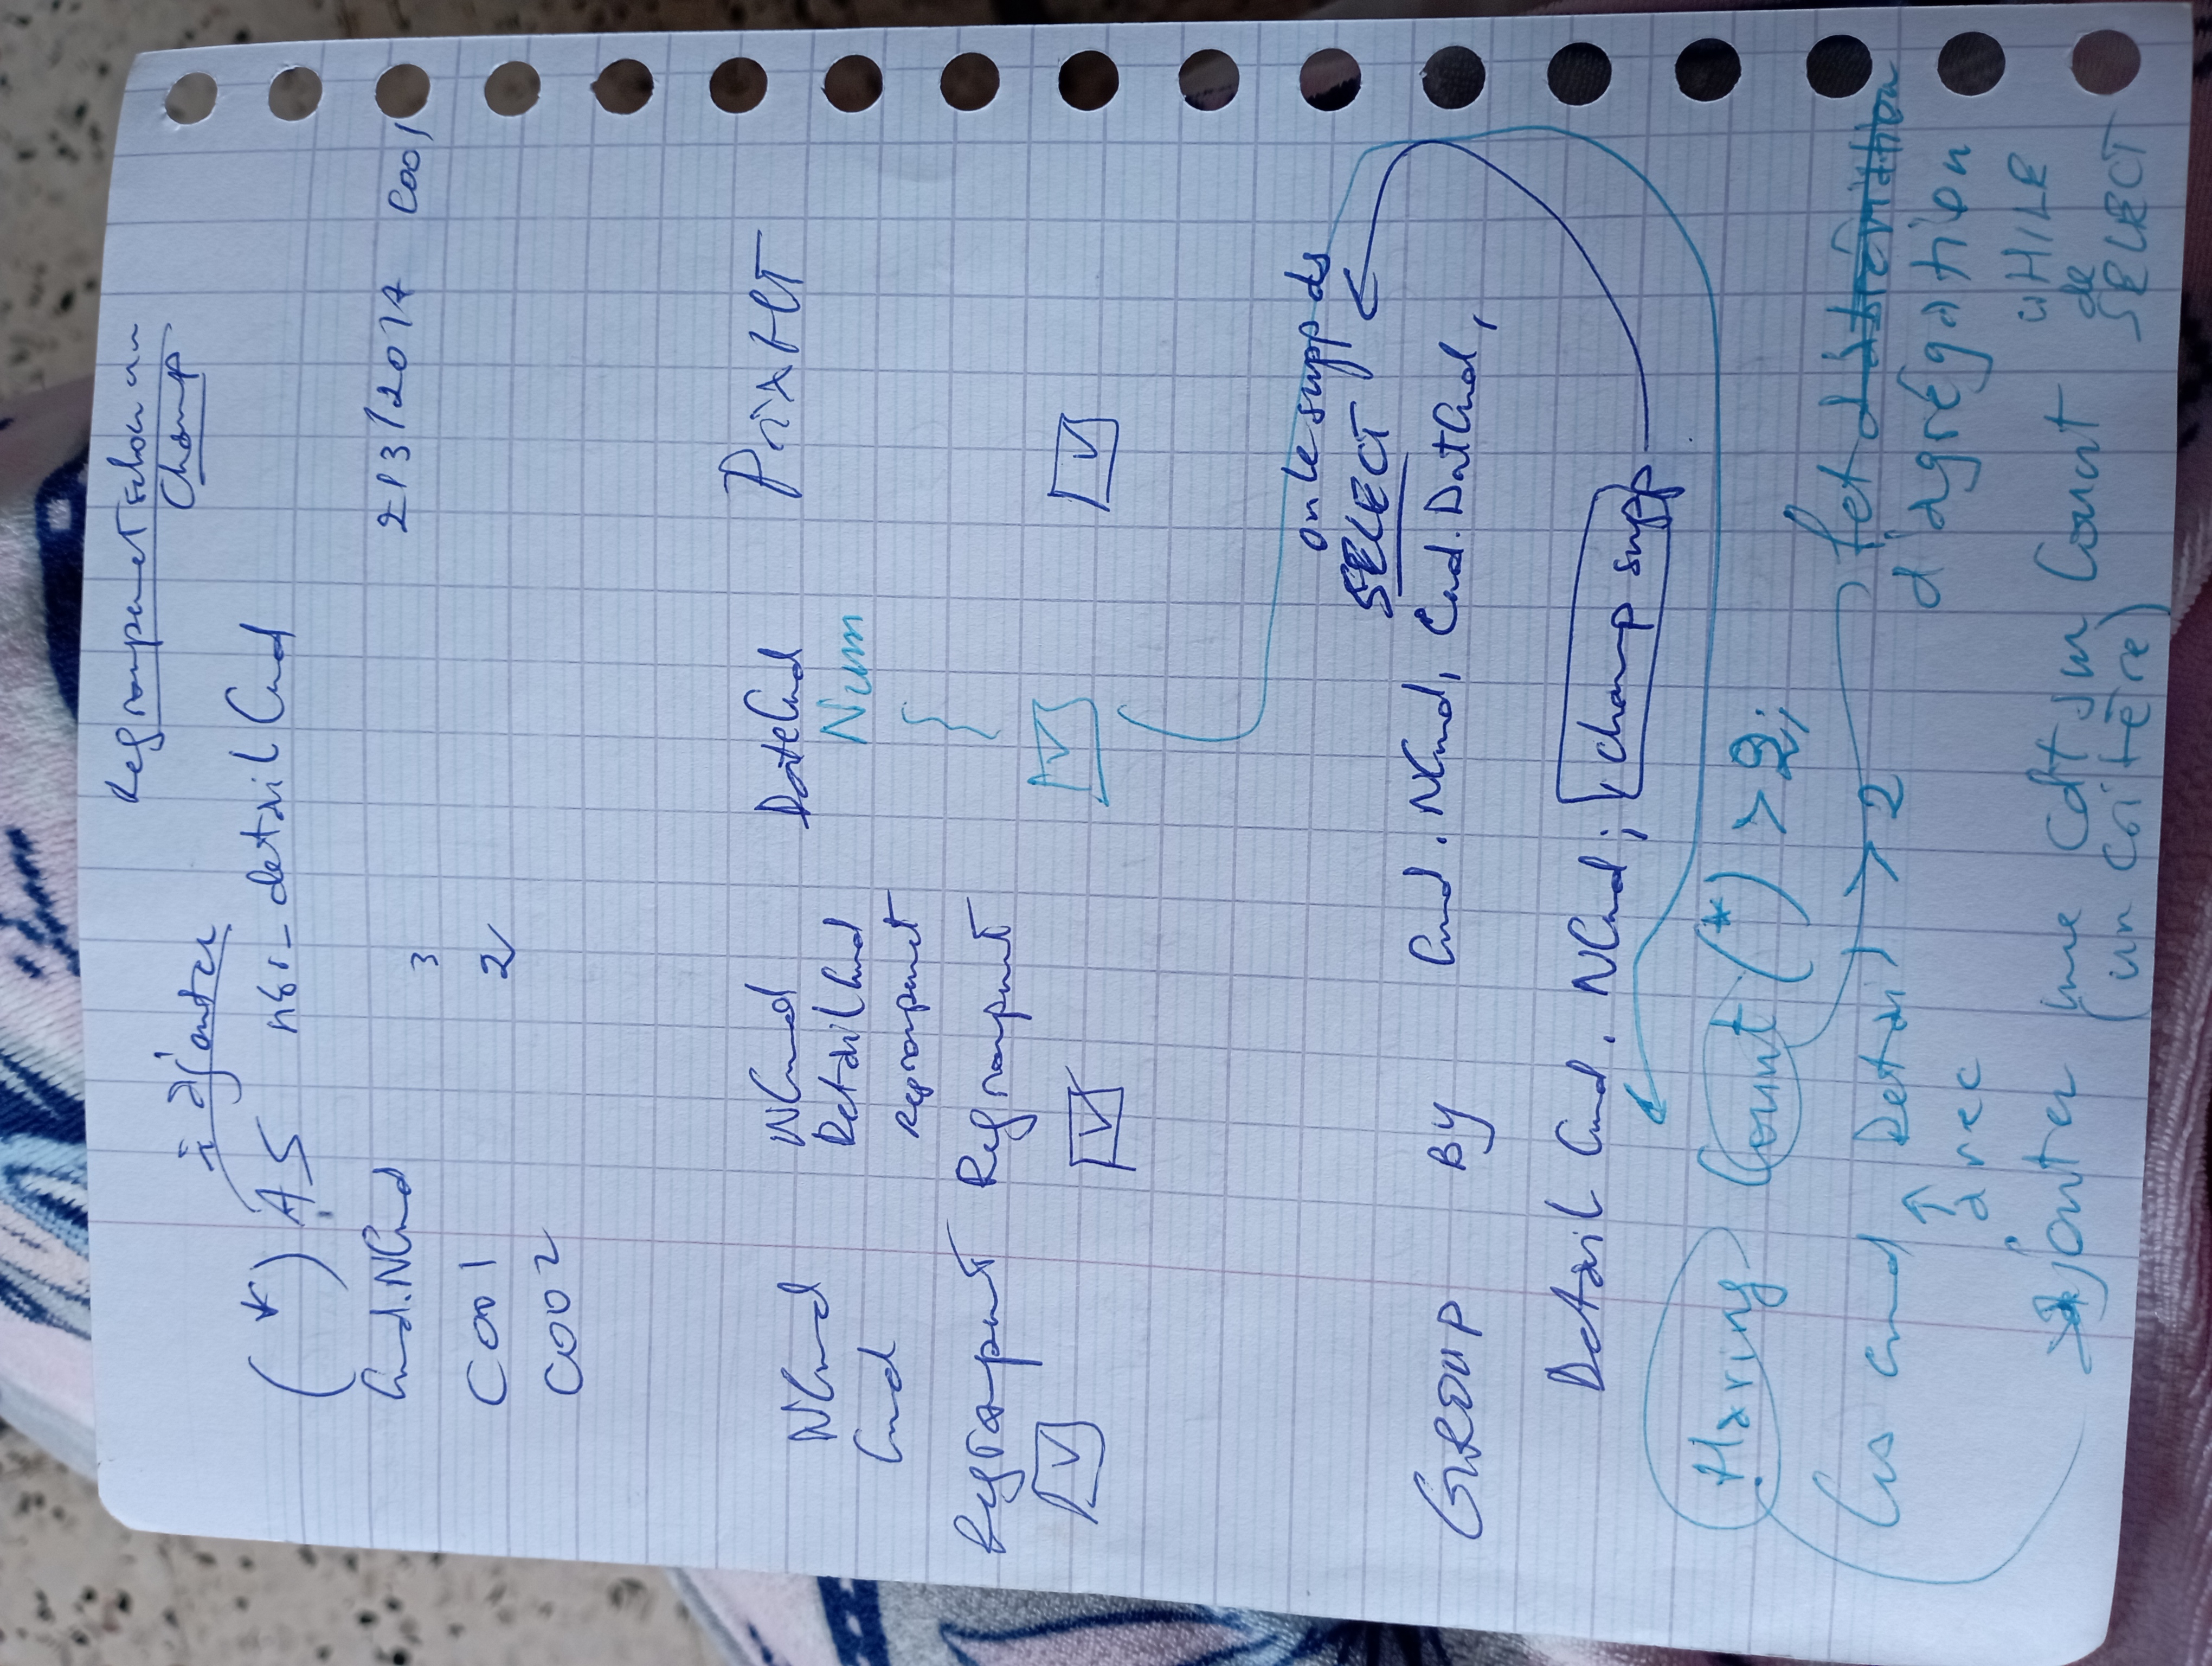 Regroupemet selon un
Champ
à ajouter
(*) AS nbr_detail Cmd
Cmd.NCmd
3
2/3/2017 C001
C001
2
C002
NCmd
Cmd
NCmd
DetailCmd
regroupemet
DateCmd
Num
PrixHT
Regroupemt
Regroupemt
on le supp ds
SELECT
GROUP BY Cmd.NCmd, Cmd.DatCmd,
Detail Cmd.NCmd; , champ supp
Having Count (*) > 2;
les cmd Detail > 2
avec
fct
d'agrégation
ajouter une cdt sur Count
(un critère)
WHILE
de
SELECT